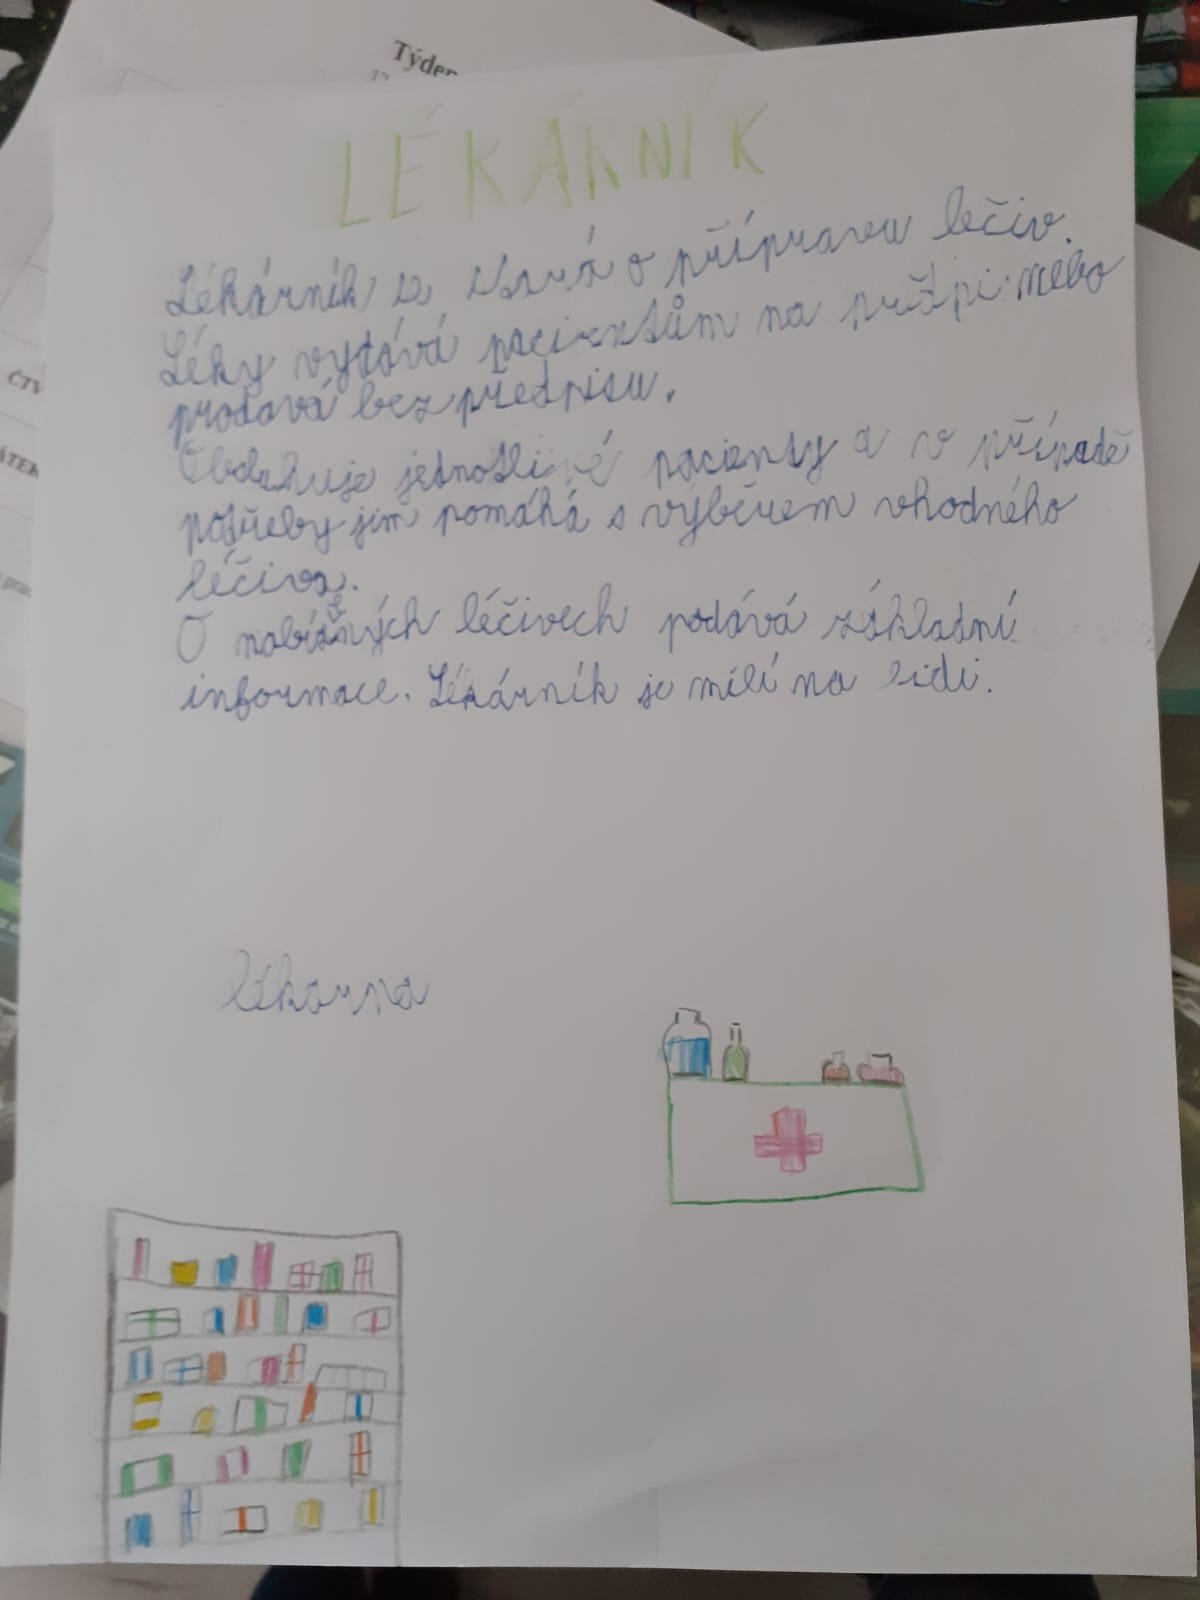 Týden
ČTV
ÁTEK
LÉKÁRNÍK
Lékárník se stará o přípravu léčiv.
Léky vydává pacientům na předpi nebo
prodavá bez předpisu.
Obsluhuje jednotlivé pacienty a v případě
potřeby jim pomáhá s výběrem vhodného
léčiva.
O nabízených léčivech podává základní
informace. Lékárník je milí na lidi.
lékarna